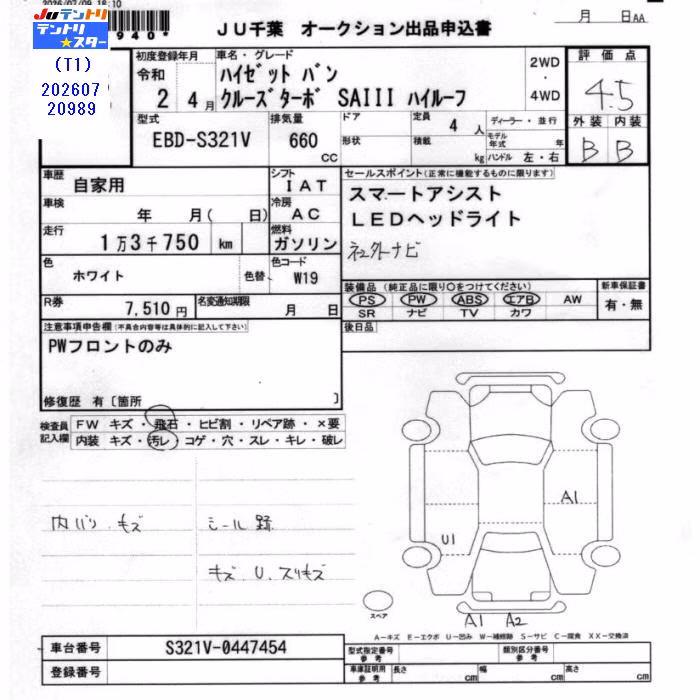 2026/07/09 18:10
JUテントリ
テントリ★スター
(T1)
202607
20989
940*
JU千葉 オークション出品申込書
月 日AA
初度登録年月
令和
2 4月
車名・グレード
ハイゼット バン
クルーズターボ SAIII ハイルーフ
2WD
・
4WD
評価点
4.5
型式
EBD-S321V
排気量
660
CC
ドア
形状
定員
4 人
積載
kg
ディーラー・並行
モデル年式 年
ハンドル 左・右
外装 内装
B B
車歴
自家用
シフト
IAT
車検
年 月( 日)
冷房
AC
走行
1万3千750 km
燃料
ガソリン
色
ホワイト
色替
色コード
W19
R券
7,510円
名変通知期限
月 日
セールスポイント(正常に機能するものに限ります)
スマートアシスト
LEDヘッドライト
社外ナビ
装備品 (純正品に限り○をつけてください)
PS PW ABS エアB AW
SR ナビ TV カワ
新車保証書
有・無
後日品
注意事項申告欄(不具合内容等は具体的に記入して下さい)
PWフロントのみ
修復歴 有〔箇所 〕
検査員記入欄
FW キズ・飛石・ヒビ割・リペア跡・×要
内装 キズ・汚レ・コゲ・穴・スレ・キレ・破レ
内バリ キズ
シール跡
キズ、U、スリキズ
A1
U1
A1 A2
スペア
A-キズ E-エクボ U-凹み W-補修跡 S-サビ C-腐食 XX-交換済
車台番号
S321V-0447454
登録番号
型式指定番号
参考
類別区分番号
参考
車庫証明用
参考
長さ cm
幅 cm
高さ cm